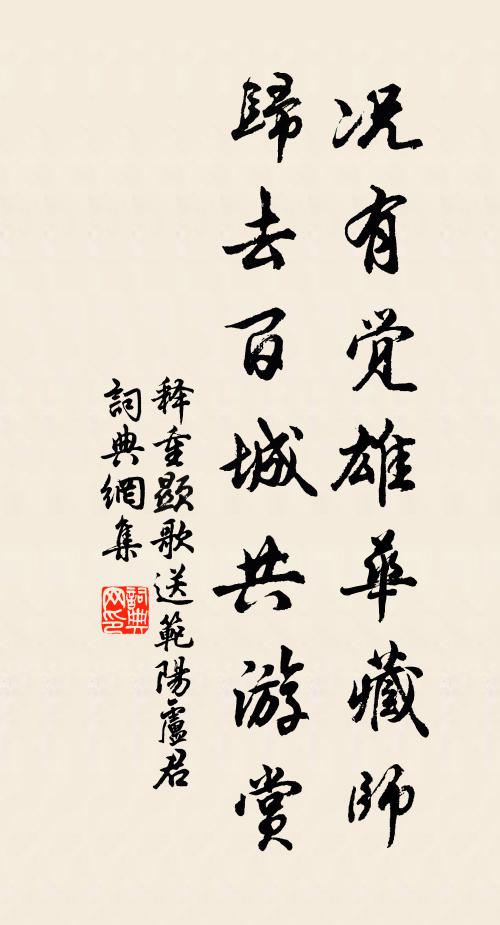 况有觉雄华藏师
歸去百城共游賞
释重顯歌送範陽盧君
詞典網集
詞典网印